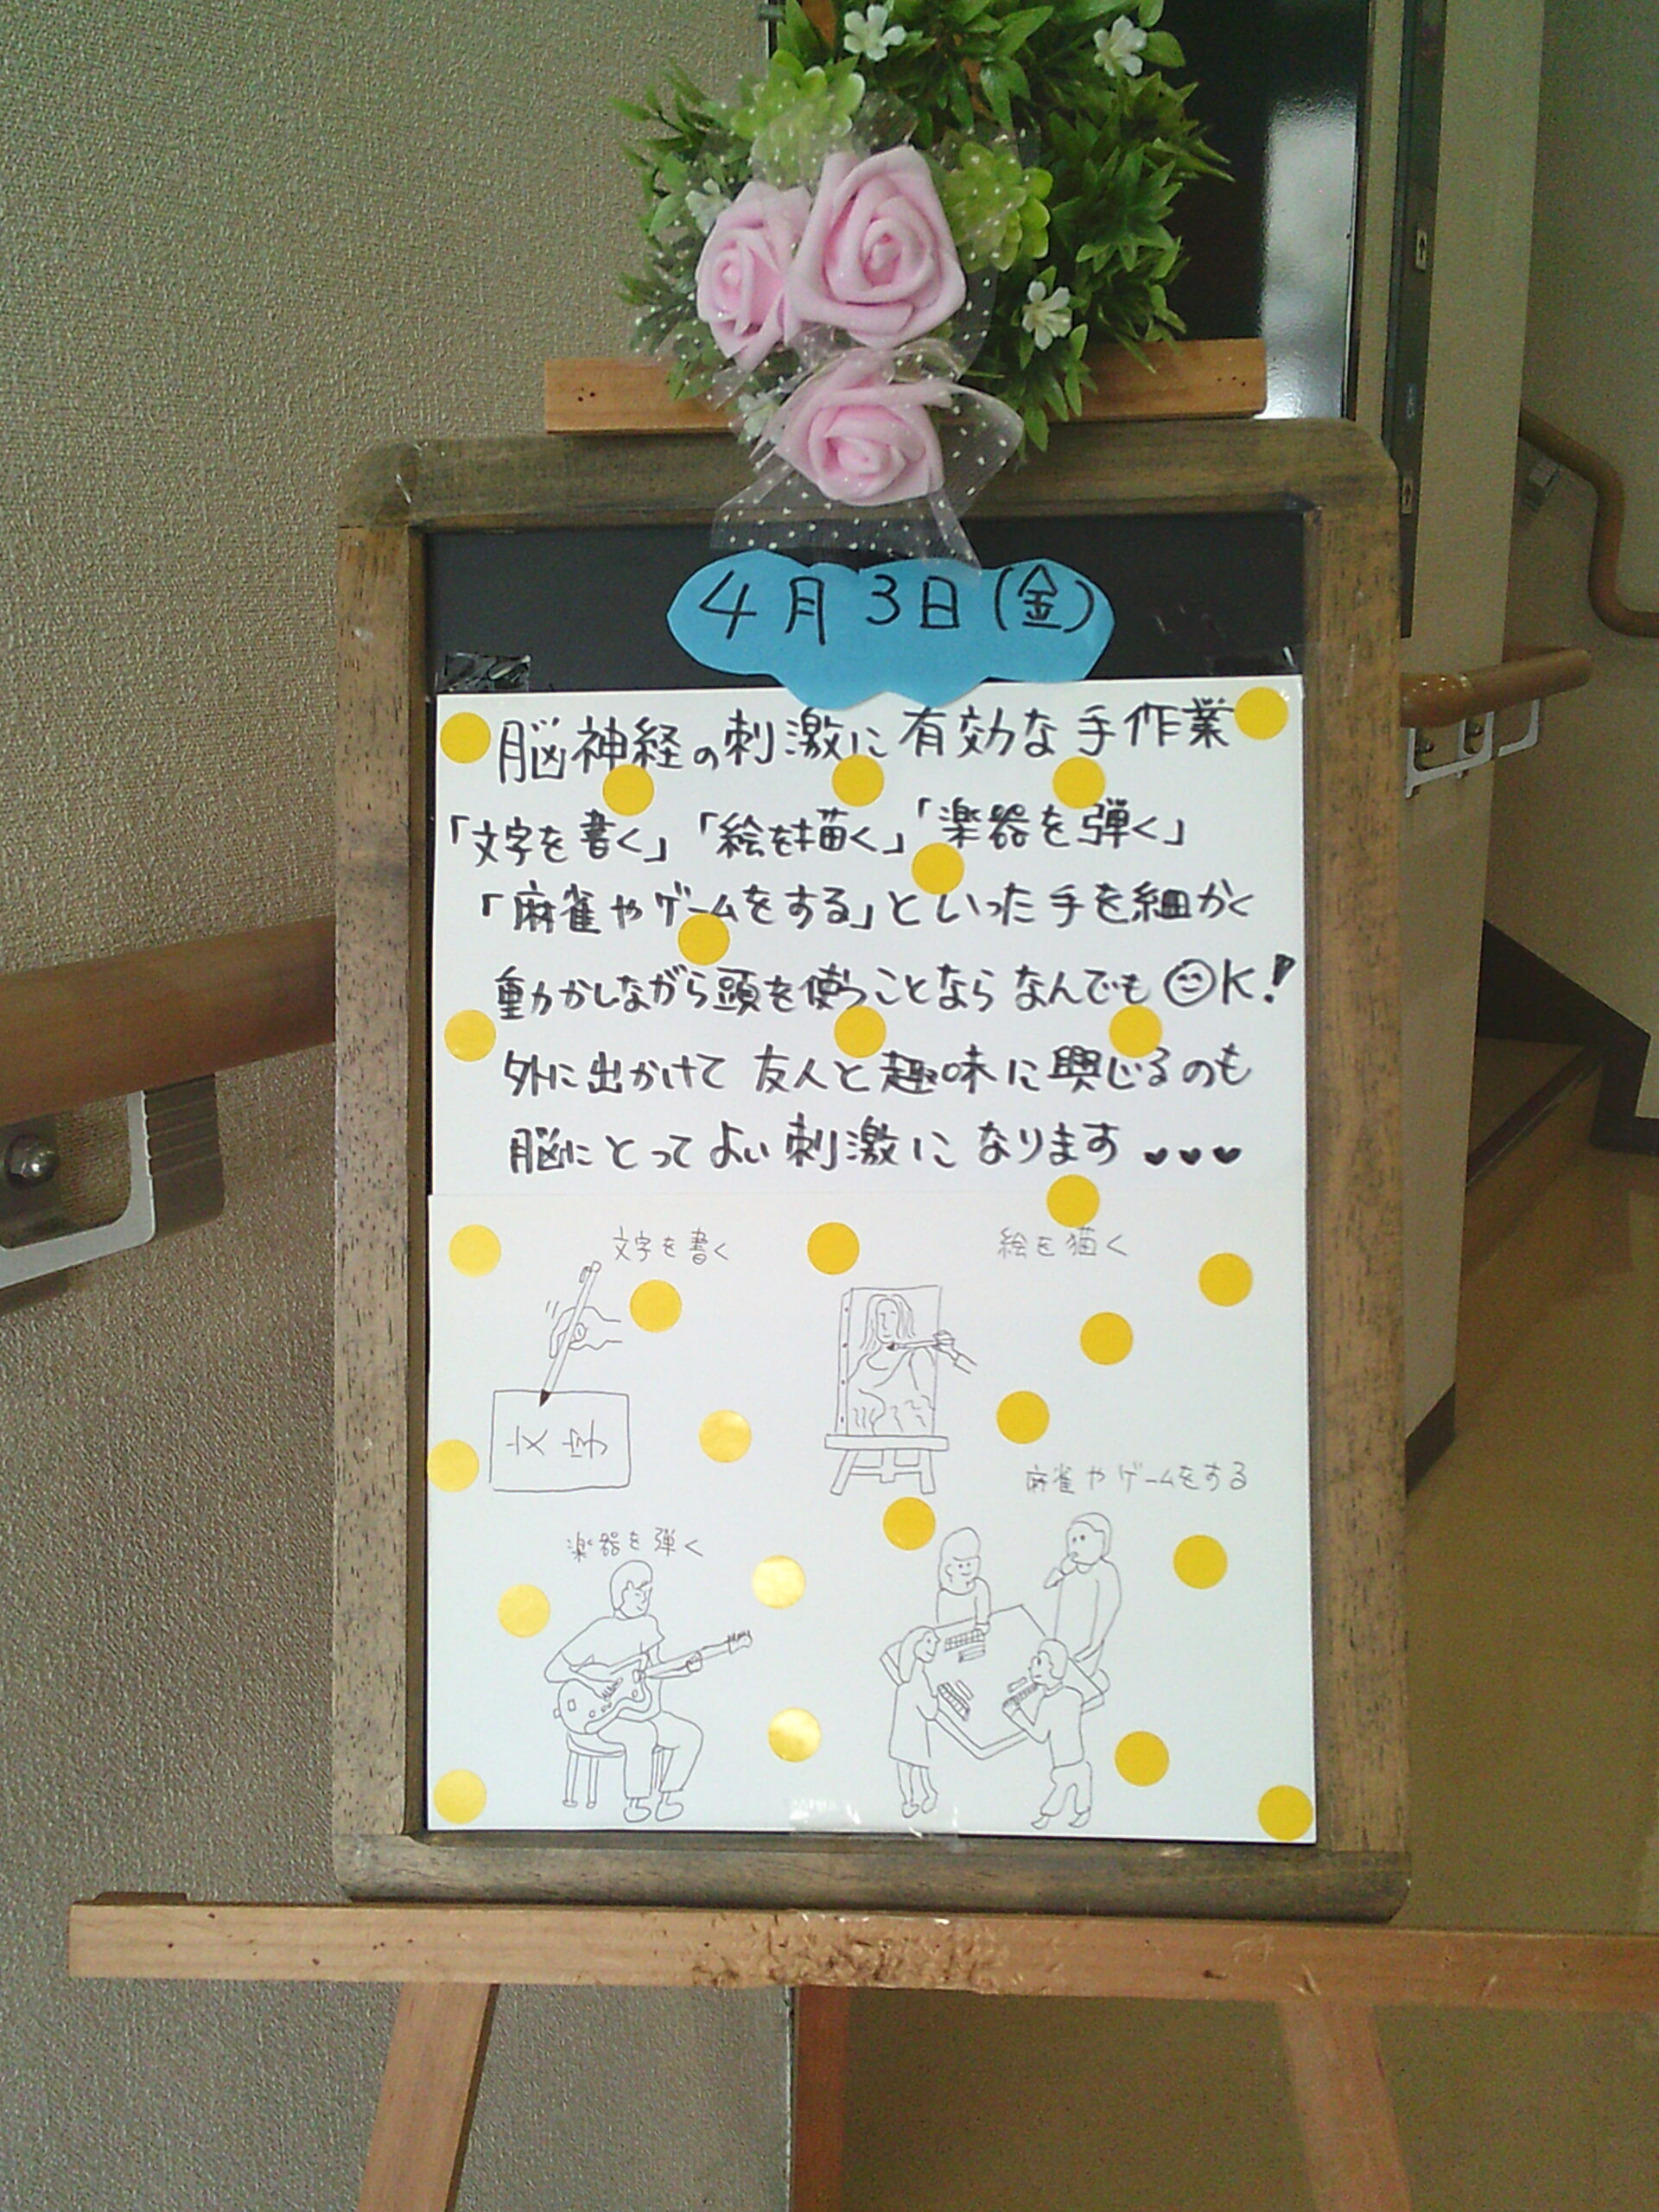 4月3日(金)
脳神経の刺激に有効な手作業
「文字を書く」「絵を描く」「楽器を弾く」
「麻雀やゲームをする」といった手を細かく
動かしながら頭を使うことならなんでもOK!
外に出かけて友人と趣味に興じるのも
脳にとってよい刺激になります
文字を書く
絵を描く
文字
麻雀やゲームをする
楽器を弾く